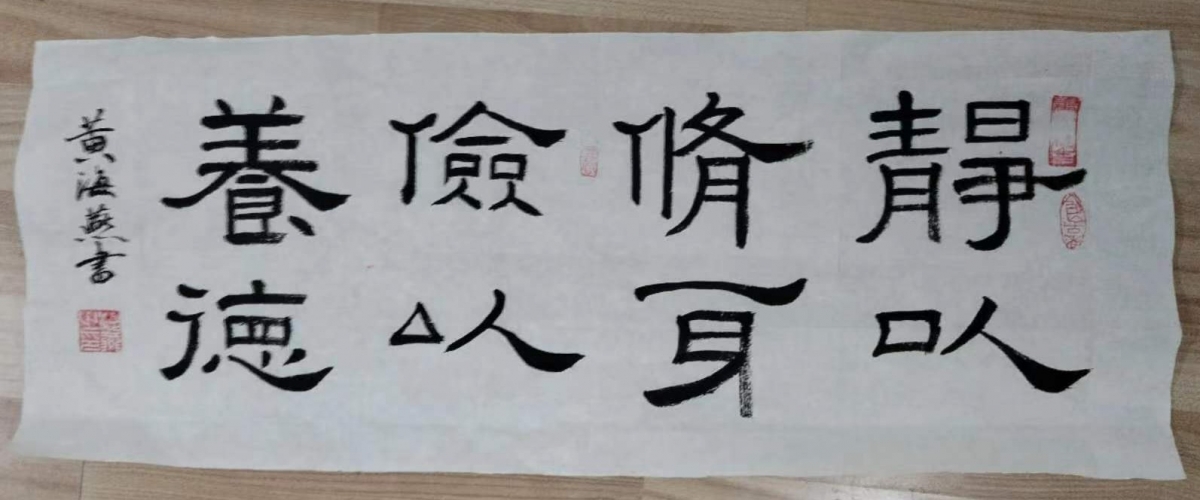 靜以
脩身
儉以
養德
黄海燕書